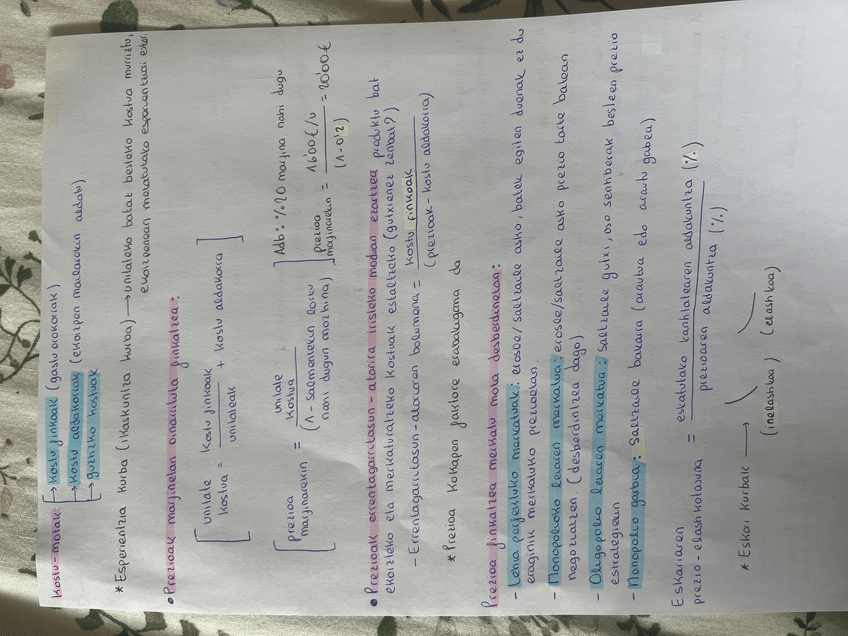 Kostu-motak: → kostu finkoak (gastu orokorrak)
→ kostu aldakorrak (ekoizpen mailarekin aldatu)
→ guztizko kostuak
* Esperientzia kurba (ikaskuntza kurba) → unitateko batat besteko kostua murriztu,
ekoizpenean metatutako esperientziari esker
• Prezioak marjinetan oinarrituta finkatzea:
[ unitate kostua = kostu finkoak / unitateak + kostu aldakorra ]
[ prezioa marjinarekin = unitate kostua / (1 - Salmentekin lortu nahi dugun marjina) ]
Adb: %20 marjina nahi dugu
prezioa marjinarekin = 1600€/u / (1-0'2) = 2000€
• Prezioak errentagarritasun-atarira iristeko moduan ezartzea produktu bat
ekoizteko eta merkaturatzeko kostuak estaltzeko (gutxienez zenbat?)
- Errentagarritasun-atariaren bolumena = kostu finkoak / (prezioak - kostu aldakorra)
* Prezioa kokapen faktore erabakigarria da
Prezioa finkatzea merkatu mota desberdinetan:
- Lehia perfektuko merkatuak: erosle/saltzaile asko, batek egiten duenak ez du
eraginik merkatuko prezioetan.
- Monopolioko lehiaren merkatua: erosle/saltzaile asko prezio tarte batean
negoziatzen. (desberdintzea dago)
- Oligopolio lehiaren merkatua: saltzaile gutxi, oso sentiberak besteen prezio
estrategiein
- Monopolio garbia: Saltzaile bakarra (arautua edo arautu gabea)
Eskariaren
prezio-elastikotasuna = eskatutako kantitatearen aldakuntza (%) / prezioaren aldakuntza (%)
* Eskari kurbak →
(inelastikoa) (elastikoa)